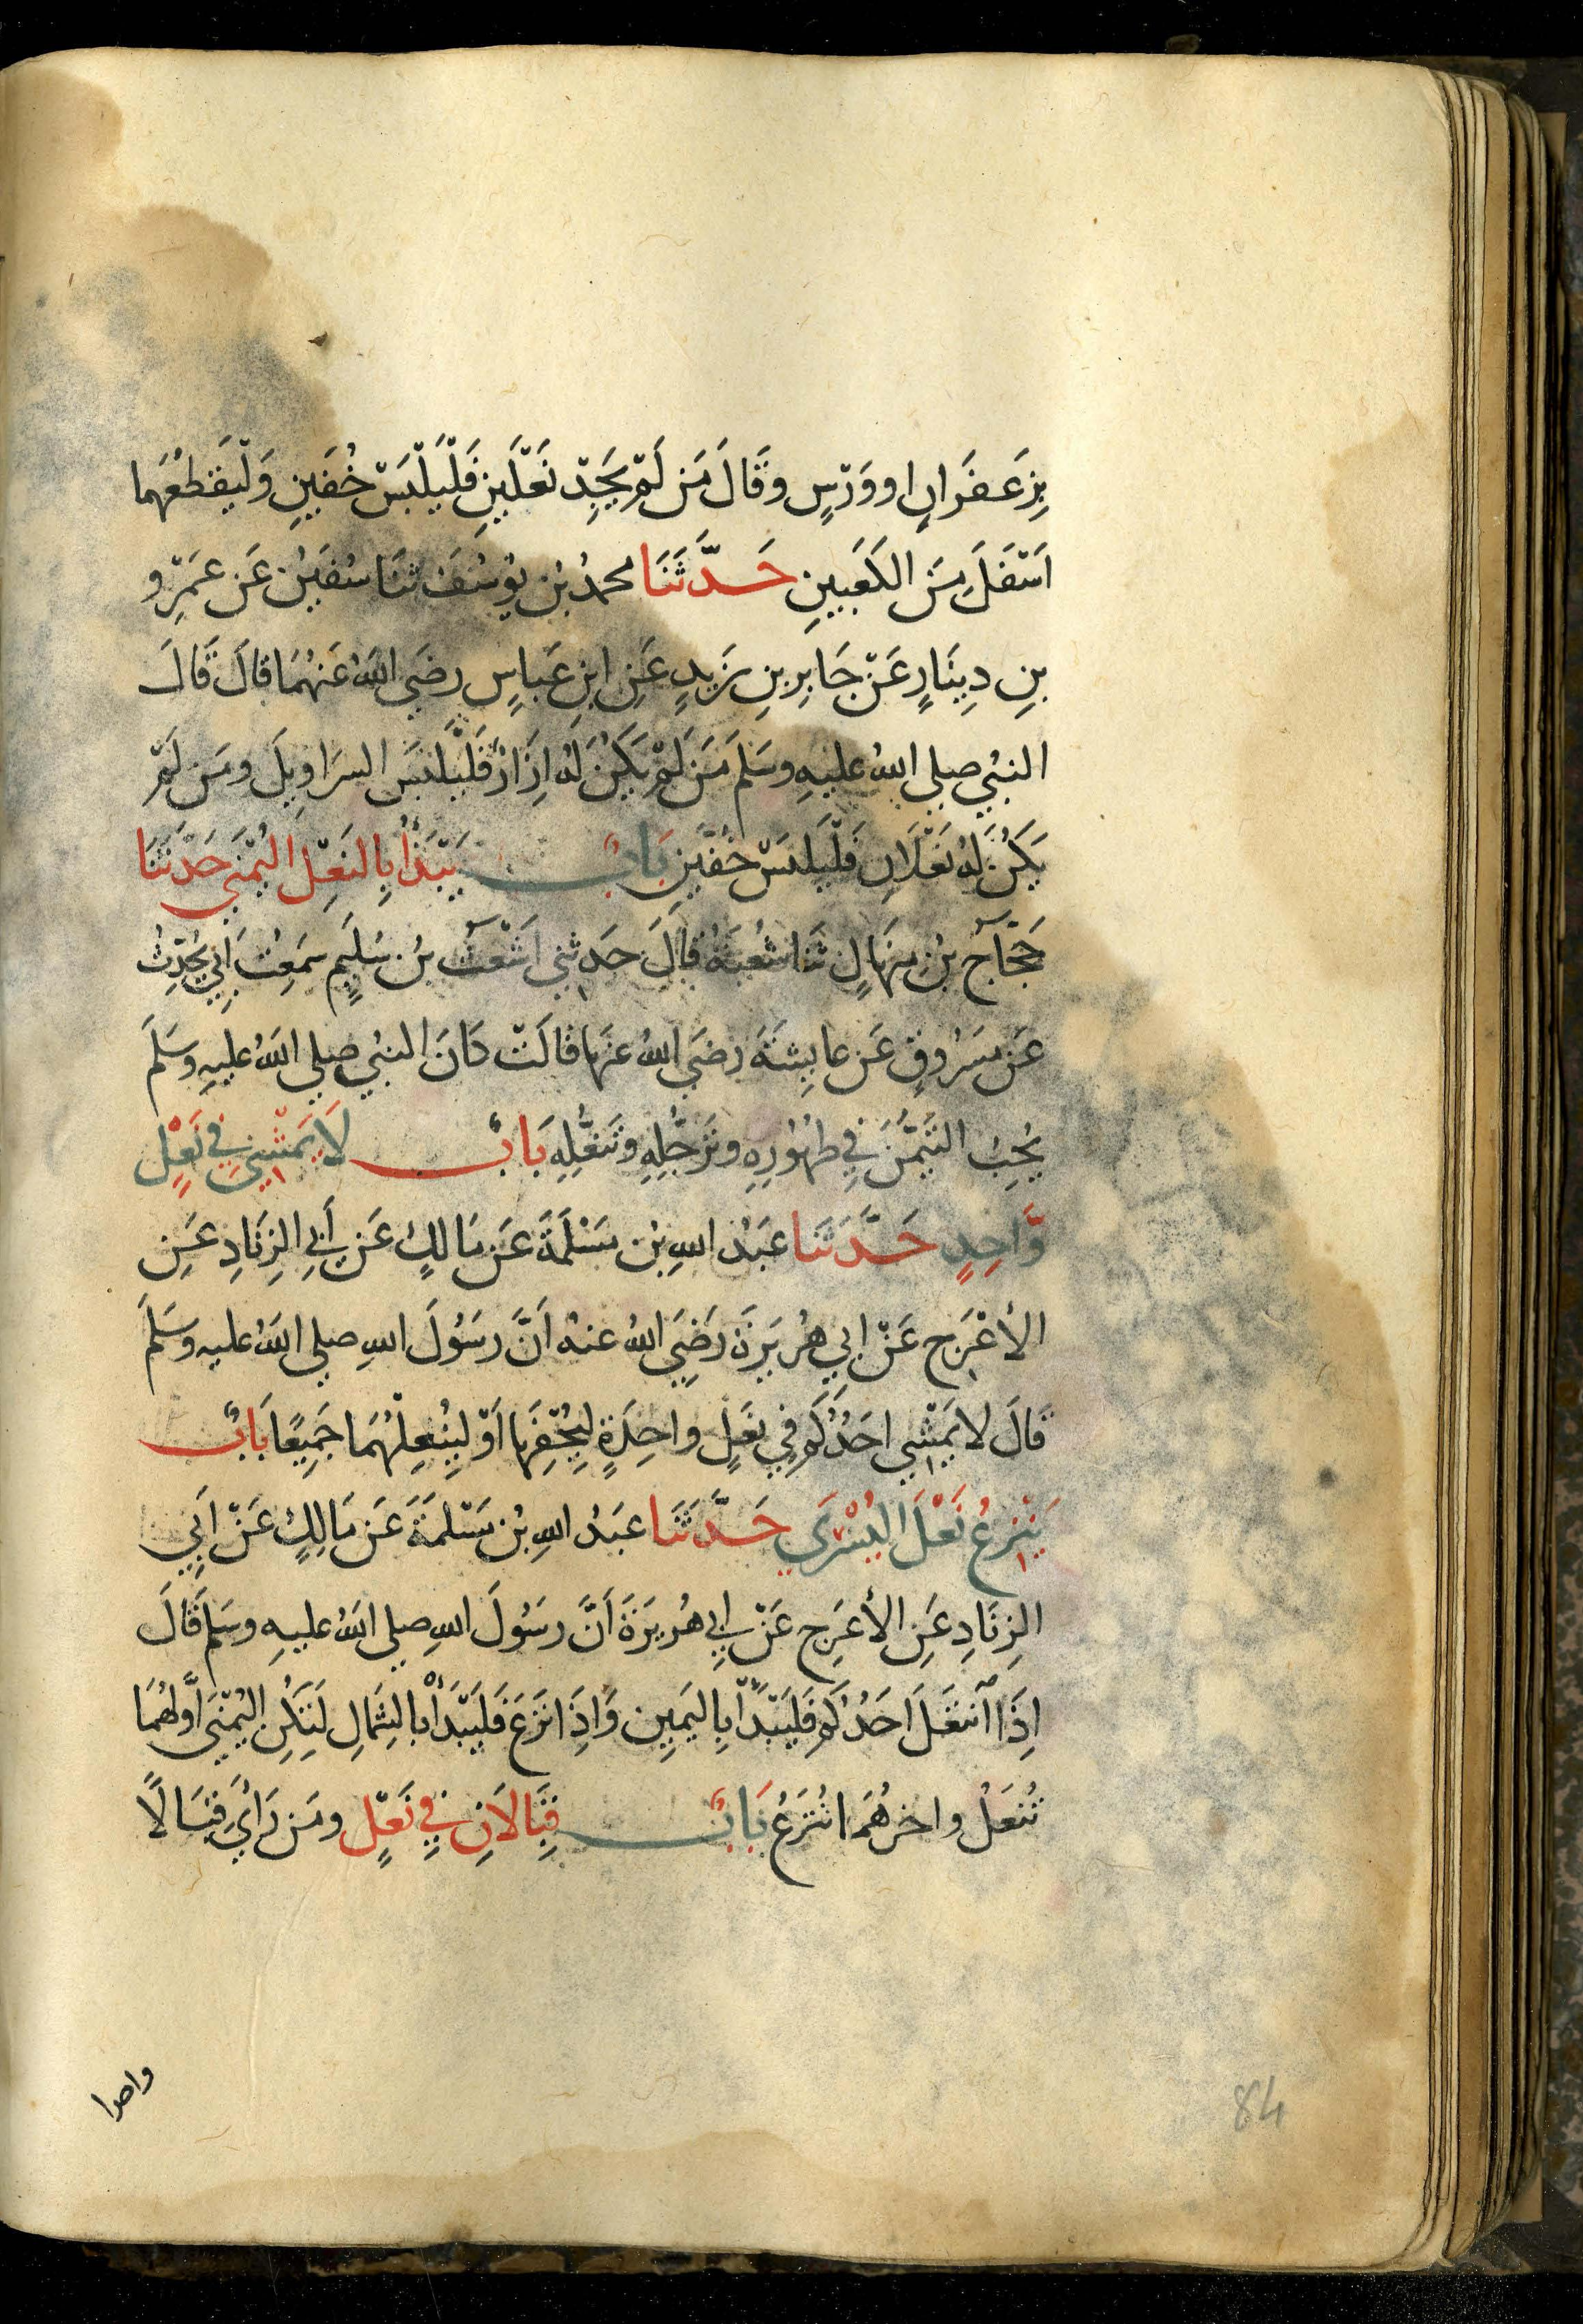 بِزَعفَرَانٍ او وَرْسٍ وقَالَ مَن لَمْ يَجِدْ نَعْلَينِ فَلْيَلْبَسْ خُفَينِ وَلْيَقطَعْهُمَا
اَسْفَلَ مِنَ الكَعْبَينِ حَدَّثَنَا محمدُ بْن يُوسُفَ ثنَا سُفيٰنُ عَن عَمْرِو
بنِ دِينَارٍ عَنْ جَابِرِ بنِ زَيدٍ عَنِ ابنِ عَباسٍ رضيَ اللهُ عَنهُمَا قالَ قَالَ
النبيُ صلى اللهُ عليهِ وسَلمَ مَن لَمْ يَكُنْ لَهُ اِزَارٌ فَلْيَلبَسِ السرَاوِيلَ ومَن لَمْ
يَكُنْ لَهُ نَعْلَانِ فَلْيَلبَسْ خُفَّينِ بَابٌ يَبْدَأُ بِالنَعْلِ اليُمْنَى حَدَّثَنَا
حَجَّاجُ بْنُ مِنهَالٍ ثَنَا شُعْبَةُ قَالَ حَدثني اَشْعَثُ بْنُ سُلَيمٍ سَمِعْتُ اَبِي يُحَدِّثُ
عَن مَسْرُوقٍ عَن عايِشَةَ رضَيَ اللهُ عنهَا قالَتْ كَانَ النبيُ صلى اللهُ عليهِ وسَلمَ
يُحِبُ التَيَمُّنَ فِي طُهُورِهِ وتَرَجُّلِهِ وتَنَعُّلِهِ بَابٌ لَا يَمْشِي فِي نَعْلٍ
وَّاحِدٍ حَدَّثَنَا عَبْدُ اللهِ بْن مَسْلَمَةَ عَن مَالِكٍ عَن أَبِي الزِنَادِ عَنِ
الأَعْرَجِ عَنْ ابِي هُريرَةَ رَضِيَ اللهُ عنهُ اَنَّ رسُولَ اللهِ صلى اللهُ عليه وسَلمَ
قَالَ لا يَمْشِي احَدُكُم فِي نعَلٍ واحِدَةٍ لِيُحْفِهَا اَوْ لِيُنْعِلْهُمَا جَمِيْعًا بَابٌ
يَنْزِعُ نَعْلَ اليُسْرَى حَدَّثَنَا عَبدُ اللهِ بْن مَسْلَمَةَ عَن مَالِكٍ عَنْ اَبِي
الزِنَادِ عَنِ الأَعرَجِ عَنْ اَبِي هُريرَةَ اَنَّ رسُولَ اللهِ صلى اللهُ عليهِ وسَلمَ قَالَ
اِذَا ٱنتَعَلَ اَحَدُكُم فَليَبْدَأْ بِاليَمِينِ وَاِذَا نَزَعَ فَليَبْدَأْ بالشِمَالِ لِتَكُنِ اليُمْنَى اَوَّلَهُمَا
تُنعَلُ واخرَهُمَا تُنْزَعُ بَابٌ قِبَالَانِ فِي نَعْلٍ ومَن رَاَى قِبَالًا
واحدا
84